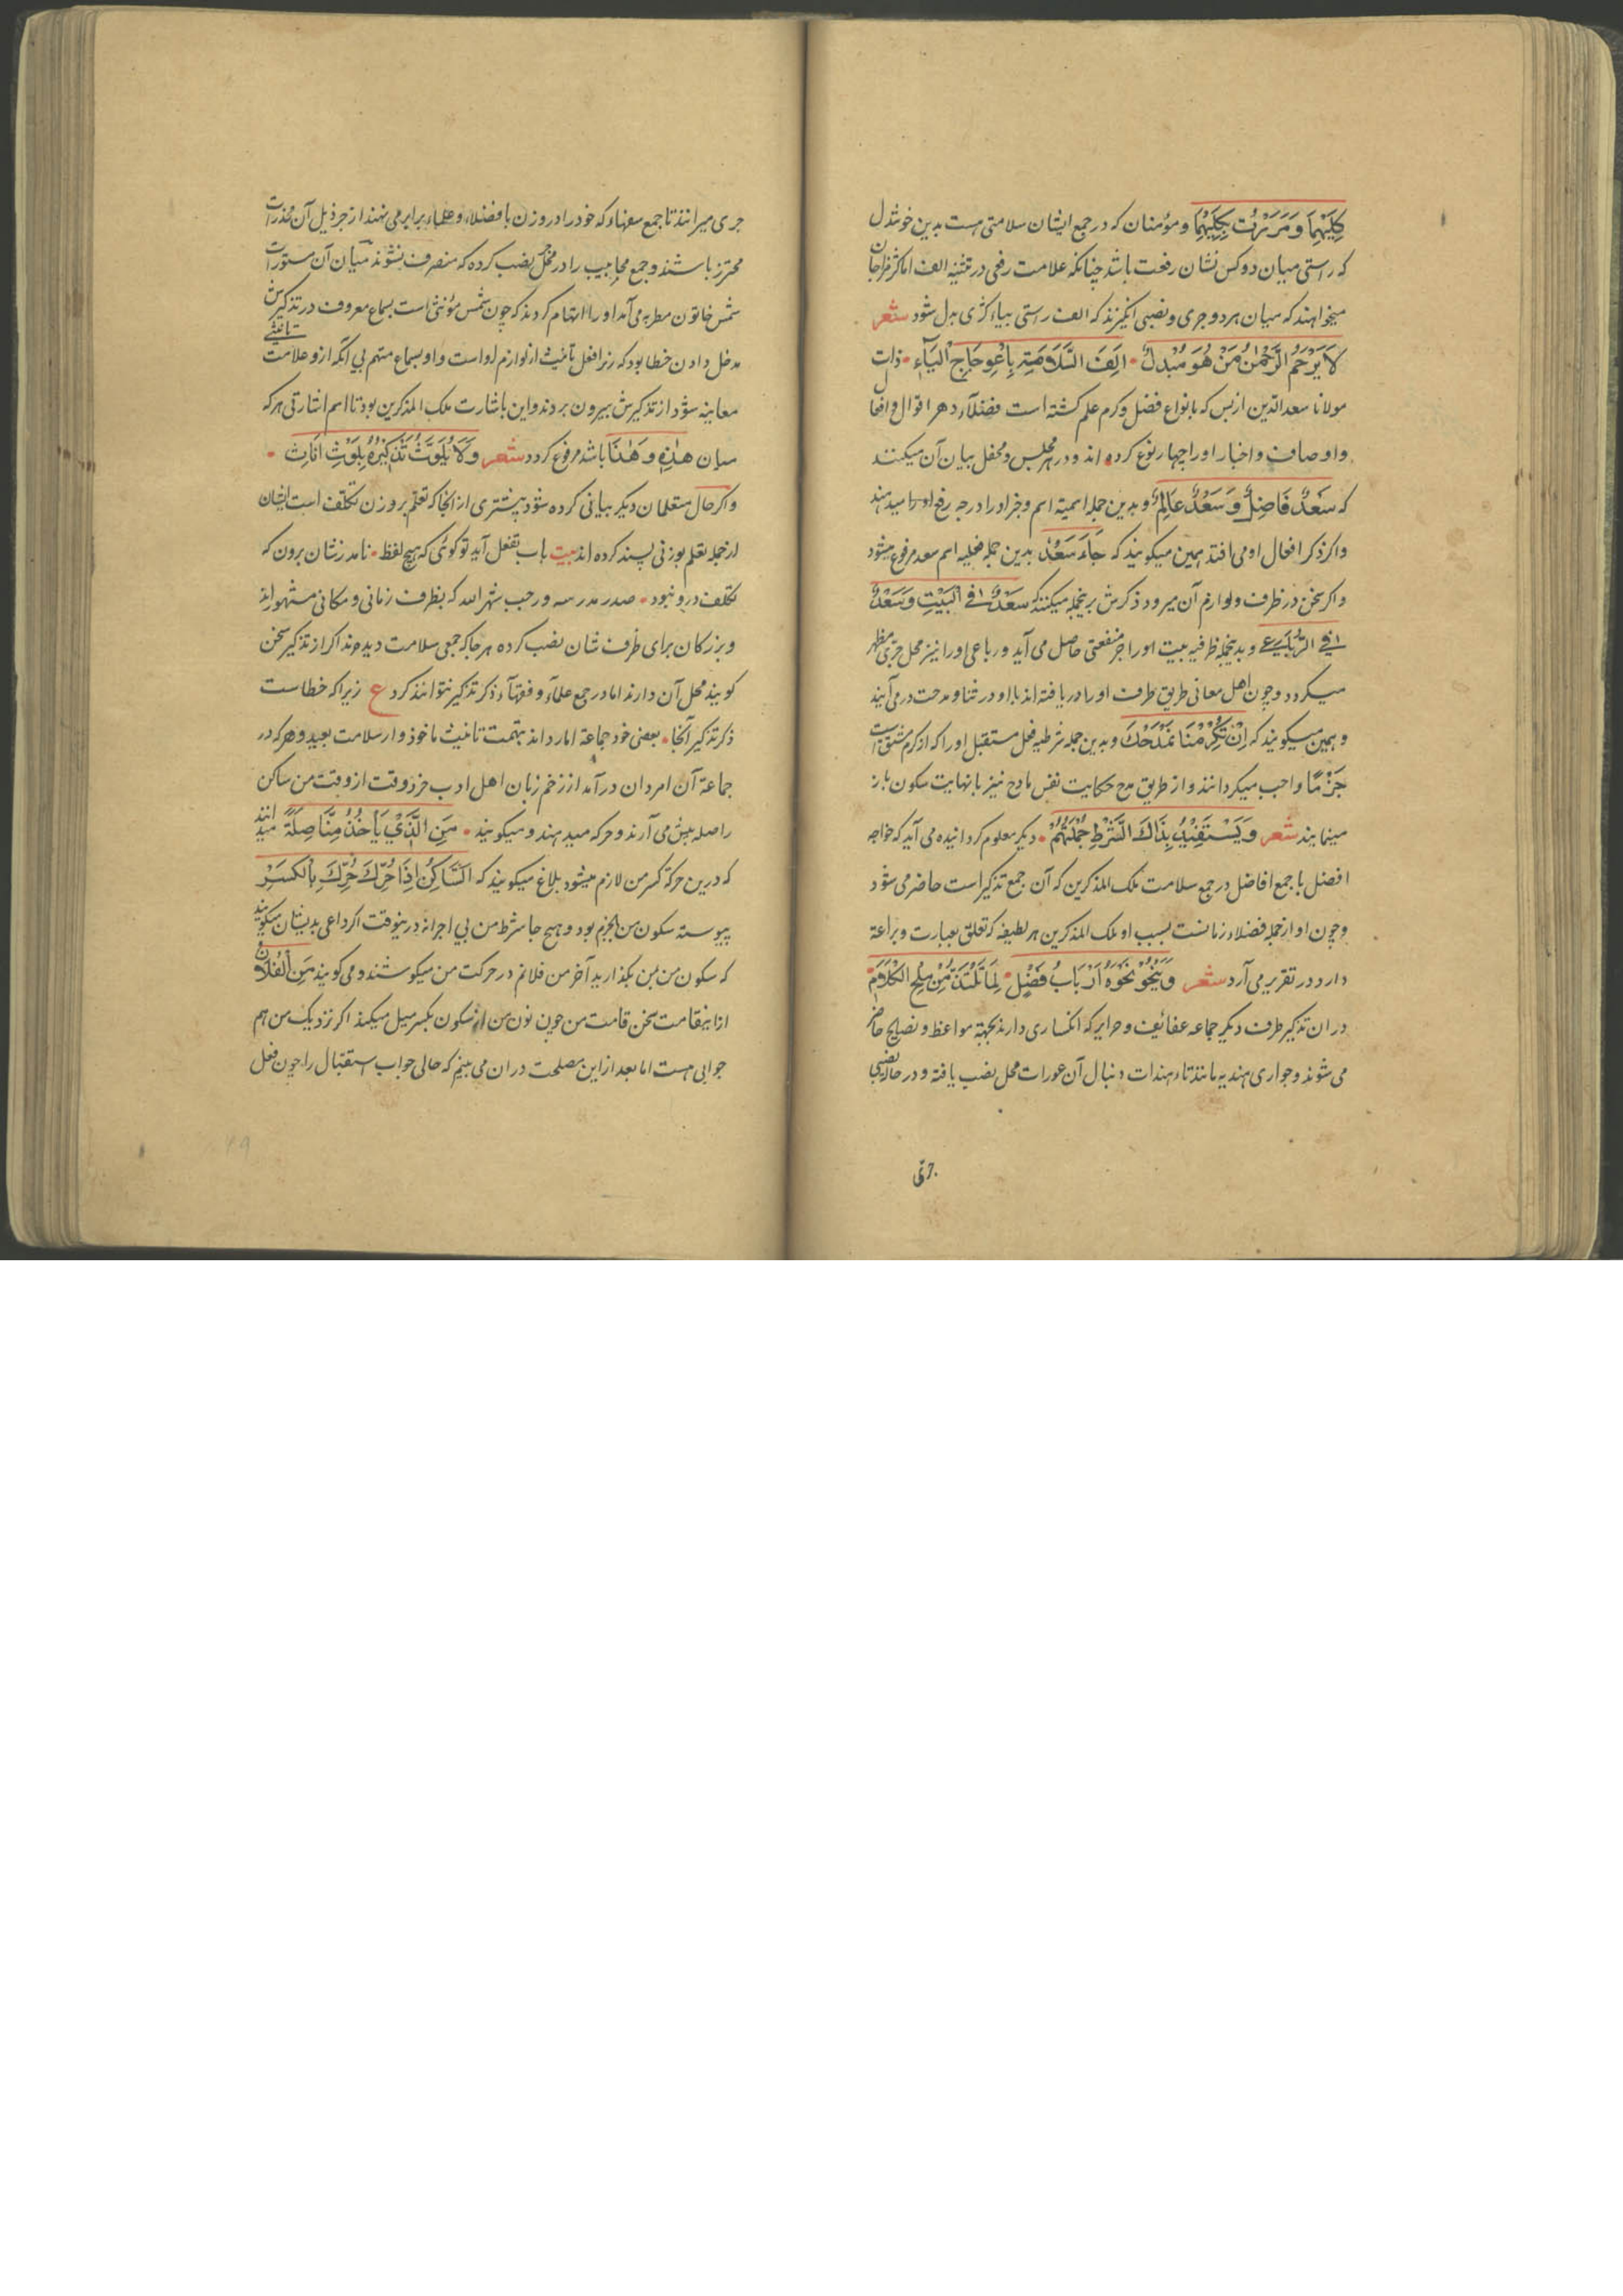 كِلَيْهِمَا وَمَرَرْتُ بِكِلَيْهِمَا و مؤمنان که در جمع ایشان سلامتی هست بدین خوشدل
که راستی میان دو کس نشان رفعت باشد چنانکه علامت رفعی در تثنیه الف اما کژ مزاجان
میخواهند که میان هر دو جری و نصبی انگیزند که الف راستی بیاء کژی بدل شود شعر
لَا يَرْحَمُ الرَّحْمٰنُ مَنْ هُوَ مُبْدِلٌ اَلِفَ السَّلَامَةِ بِاعْوِجَاجِ الْيَاءِ ذات
مولانا سعدالدین از بس که بانواع فضل و کرم علم کشته است فضلاء دهر اقوال و افعال
و اوصاف و اخبار او را چهار نوع کرده اند و در هر مجلس و محفل بیان آن میکنند
که سَعْدٌ فَاضِلٌ وَسَعْدٌ عَالِمٌ و بدین جمله اسمیه اسم و خبر او را درجه رفع میدهند
و اکر ذکر افعال او می افتد همین میکویند که جَاءَ سَعْدٌ بدین جمله فعلیه اسم سعد مرفوع میشود
و اکر سخن در ظرف و لوازم آن میرود ذکرش برینجمله میکنند که سَعْدٌ فِي الْبَيْتِ وَسَعْدٌ
فِي و بدینجمله ظرفیه بیت او را جر منفعتی حاصل می آید و رباعی او را نیز محل جری مظهر
میکردد و چون اهل معانی طریق ظرف او را دریافته اند با او در ثنا و مدحت در می آیند
و همین میکویند که اِنْ تُكْرِمْنَا نَمْدَحْكَ و بدین جمله شرطیه فعل مستقبل او را که از کرم مشتق است
جَزْمًا واجب میکردانند و از طریق مدح حکایت نفس مادح نیز با نهایت سکون باز
مینمایند شعر وَيَسْتَفِيدُ بِذَاكَ الشَّرْطِ جُمْلَتُهُمْ دیکر معلوم کردانیده می آید که خواجه
افضل با جمع افاضل در جمع سلامت ملک المذکرین که آن جمع تذکیر است حاضر می شود
و چون او از جمله فضلاء زمانست بسبب او ملک المذکرین هر لطیفه که تعلق بعبارت و براعة
دارد در تقریر می آرد شعر وَيَنْحُو نَحْوَهُ اَرْبَابُ فَضْلٍ مِنْ مُلَحِ الْكَلَامِ
در ان تذکیر طرف دیکر جماعه عفائف و حرایر که انکساری دارند بجهة مواعظ و نصایح حاضر
می شوند و جواری هندیه مانند تاء هندات دنبال آن عورات محل نصب یافته و در حال نصبی
جری میرانند تا جمع سفهاء که خود را در وزن با فضلاء و علماء برابر می نهند از جر ذیل آن مخدرات
محترز باشند و جمع محابیب را در محل نصب کرده که منصرف نشوند میان آن مستورات
شمس خاتون مطربه می آمد او را اتهام کردند که چون شمس مؤنثی است بسماع معروف در تذکیرش
مدخل دادن خطا بود که زیرا فعل تانیث از لوازم او است و او بسماع متهم بی آنکه از و علامت تانیثی
معاینه شود از تذکیرش بیرون بردند و این باشارت ملک المذکرین بود تا اسم اشارتی هر که
میان هذِهِ و هذَا باشد مرفوع کردد شعر وَلَا يُلَوَّثُ تَذْكِيرُهُ بِلَوْثِ اِنَاثٍ
و اکر حال متعلمان دیکر بیانی کرده شود بیشتری از آنجا که تعلم بر وزن تکلف است ایشان
از جمله تعلم بوزنی پسند کرده اند بیت باب تفعل آید تو کوئی که هیچ لفظ نامد زشان برون که
تکلف درو نبود صدر مدرسه و رحب شهر الله که بظرف زمانی و مکانی مشهور اند
و بزرکان برای ظرف شان نصب کرده هر جا که جمعی سلامت دیدند اکر از تذکیر سخن
کویند محل آن دارند اما در جمع علماء و فقهاء ذکر تذکیر نتوانند کرد ع زیرا که خطاست
ذکر تذکیر آنجا بعضی خود جماعة امارد اند بتهمت تانیث ماخوذ و از سلامت بعید و هر که در
جماعة آن امردان درآمد از زخم زبان اهل ادب خرد وقت از وقت من ساکن
را صله پیش می آرند و حرکه میدهند و میکویند مَنِ الَّذِي يَأْخُذُ مِنَّا صِلَةً میدانند
که درین حرکة کسر من لازم میشود بلاغ میکویند که السَّاكِنُ اِذَا حُرِّكَ حُرِّكَ بِالْكَسْرِ
پیوسته سکون من بجزم بود و هیچ جا شرط من بی اجرا نه درینوقت اکر داعی بدیشان میکوید
که سکون من بمن بگذارید آخر من فلانم در حرکت من میکوشند و می کویند مَنِ الْفُلَانُ
از اینقامت سخن قامت من چون نون من از سکون بکسر میل میکند اکر نزدیک من هم
جوابی هست اما بعد از این مصلحت در ان می بینم که حالی جواب استقبال را چون فعل